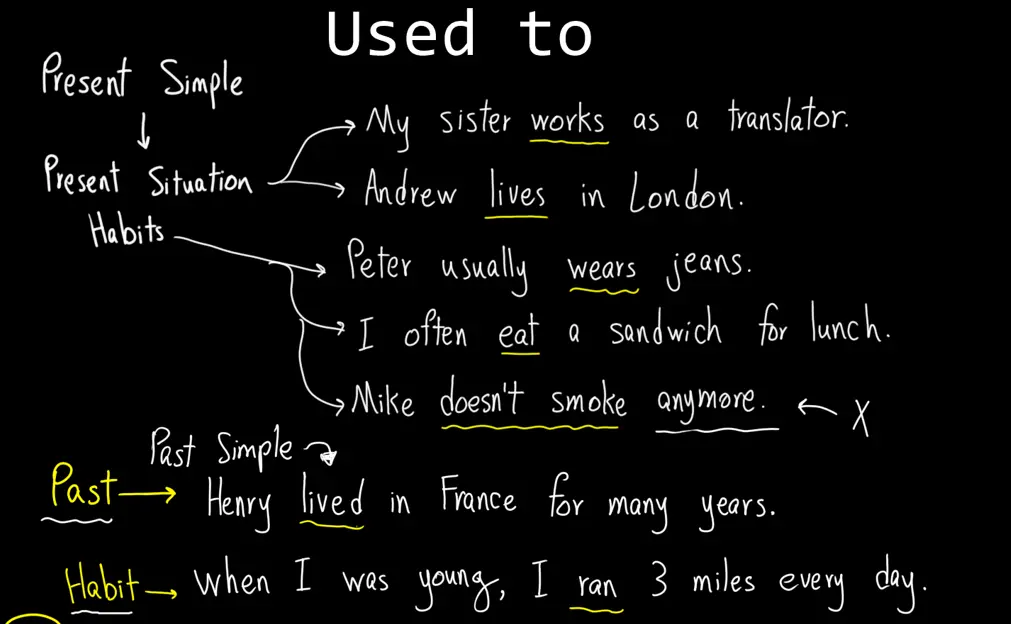 Used to
Present Simple
Present Situation
Habits
My sister works as a translator.
Andrew lives in London.
Peter usually wears jeans.
I often eat a sandwich for lunch.
Mike doesn't smoke anymore. X
Past Simple
Past Henry lived in France for many years.
Habit When I was young, I ran 3 miles every day.